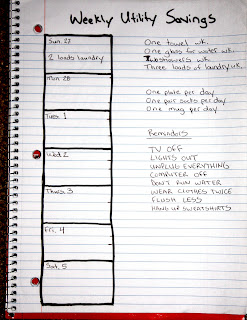 Weekly Utility Savings
Sun. 27
2 loads laundry
Mon. 28
Tues. 1
Wed. 2
Thurs. 3
Fri. 4
Sat. 5
One towel wk.
One glass for water wk.
Two showers wk.
Three loads of laundry wk.
One plate per day
One pair socks per day
One mug per day
Reminders
TV OFF
LIGHTS OUT
UNPLUG EVERYTHING
COMPUTER OFF
DON'T RUN WATER
WEAR CLOTHES TWICE
FLUSH LESS
HANG UP SWEATSHIRTS